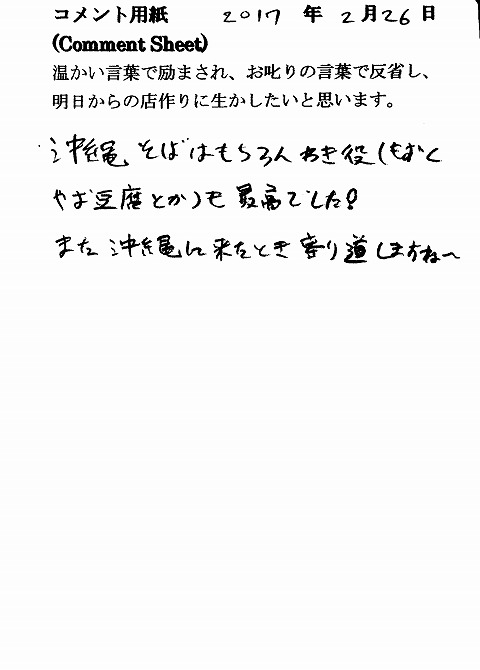 コメント用紙 2017 年 2 月 26 日
(Comment Sheet)
温かい言葉で励まされ、お叱りの言葉で反省し、
明日からの店作りに生かしたいと思います。
沖縄そばはもちろんわき役(もずく
やお豆腐とか)も最高でした!
また沖縄に来たとき寄り道しますね〜